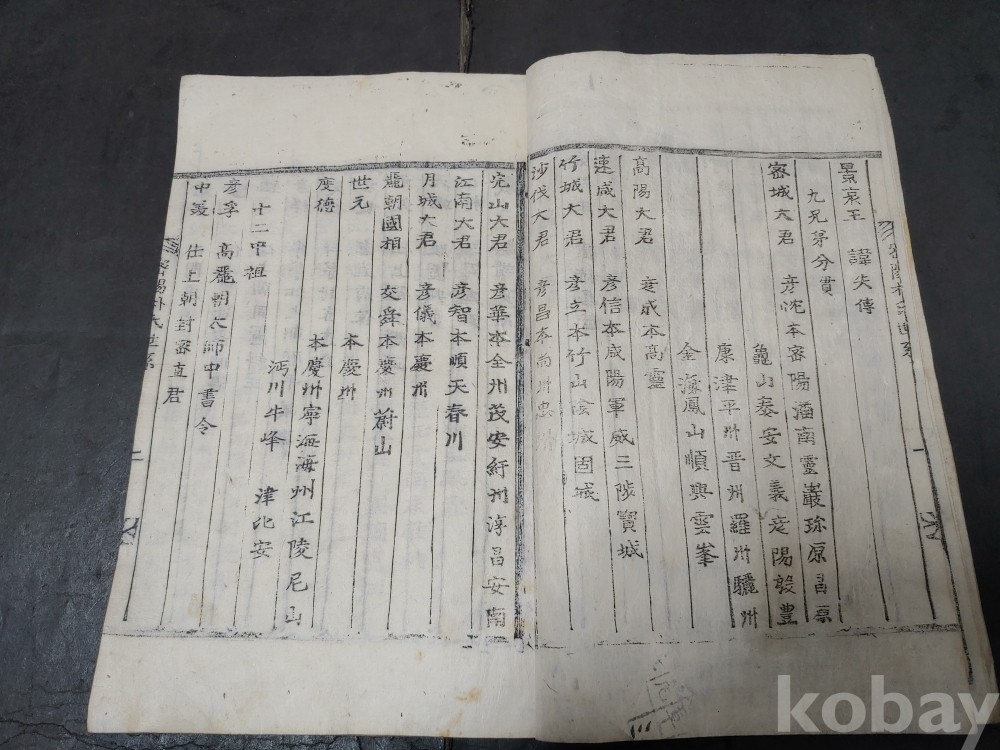 景哀王 諱失傳
九兄弟分貫
密城大君 彦忱本密陽潘南靈巖珎原昌原
龜山泰安文義彦陽敦豊
康津平州晋州羅州驪州
金海鳳山順興雲峯
高陽大君 彦成本高靈
速咸大君 彦信本咸陽軍威三陟寶城
竹城大君 彦立本竹山陰城固城
沙伐大君 彦昌本尙州忠州
完山大君 彦華本全州茂安紆州淳昌安南
江南大君 彦智本順天春川
月城大君 彦儀本慶州
麗朝國相 交舜本慶州蔚山
世元 本慶州
度德 本慶州寧海海州江陵尼山
沔川牛峰 津北安
十二中祖
彦孚 高麗朝太師中書令
中美 仕上朝封密直君
密陽朴氏世系
一
kobay